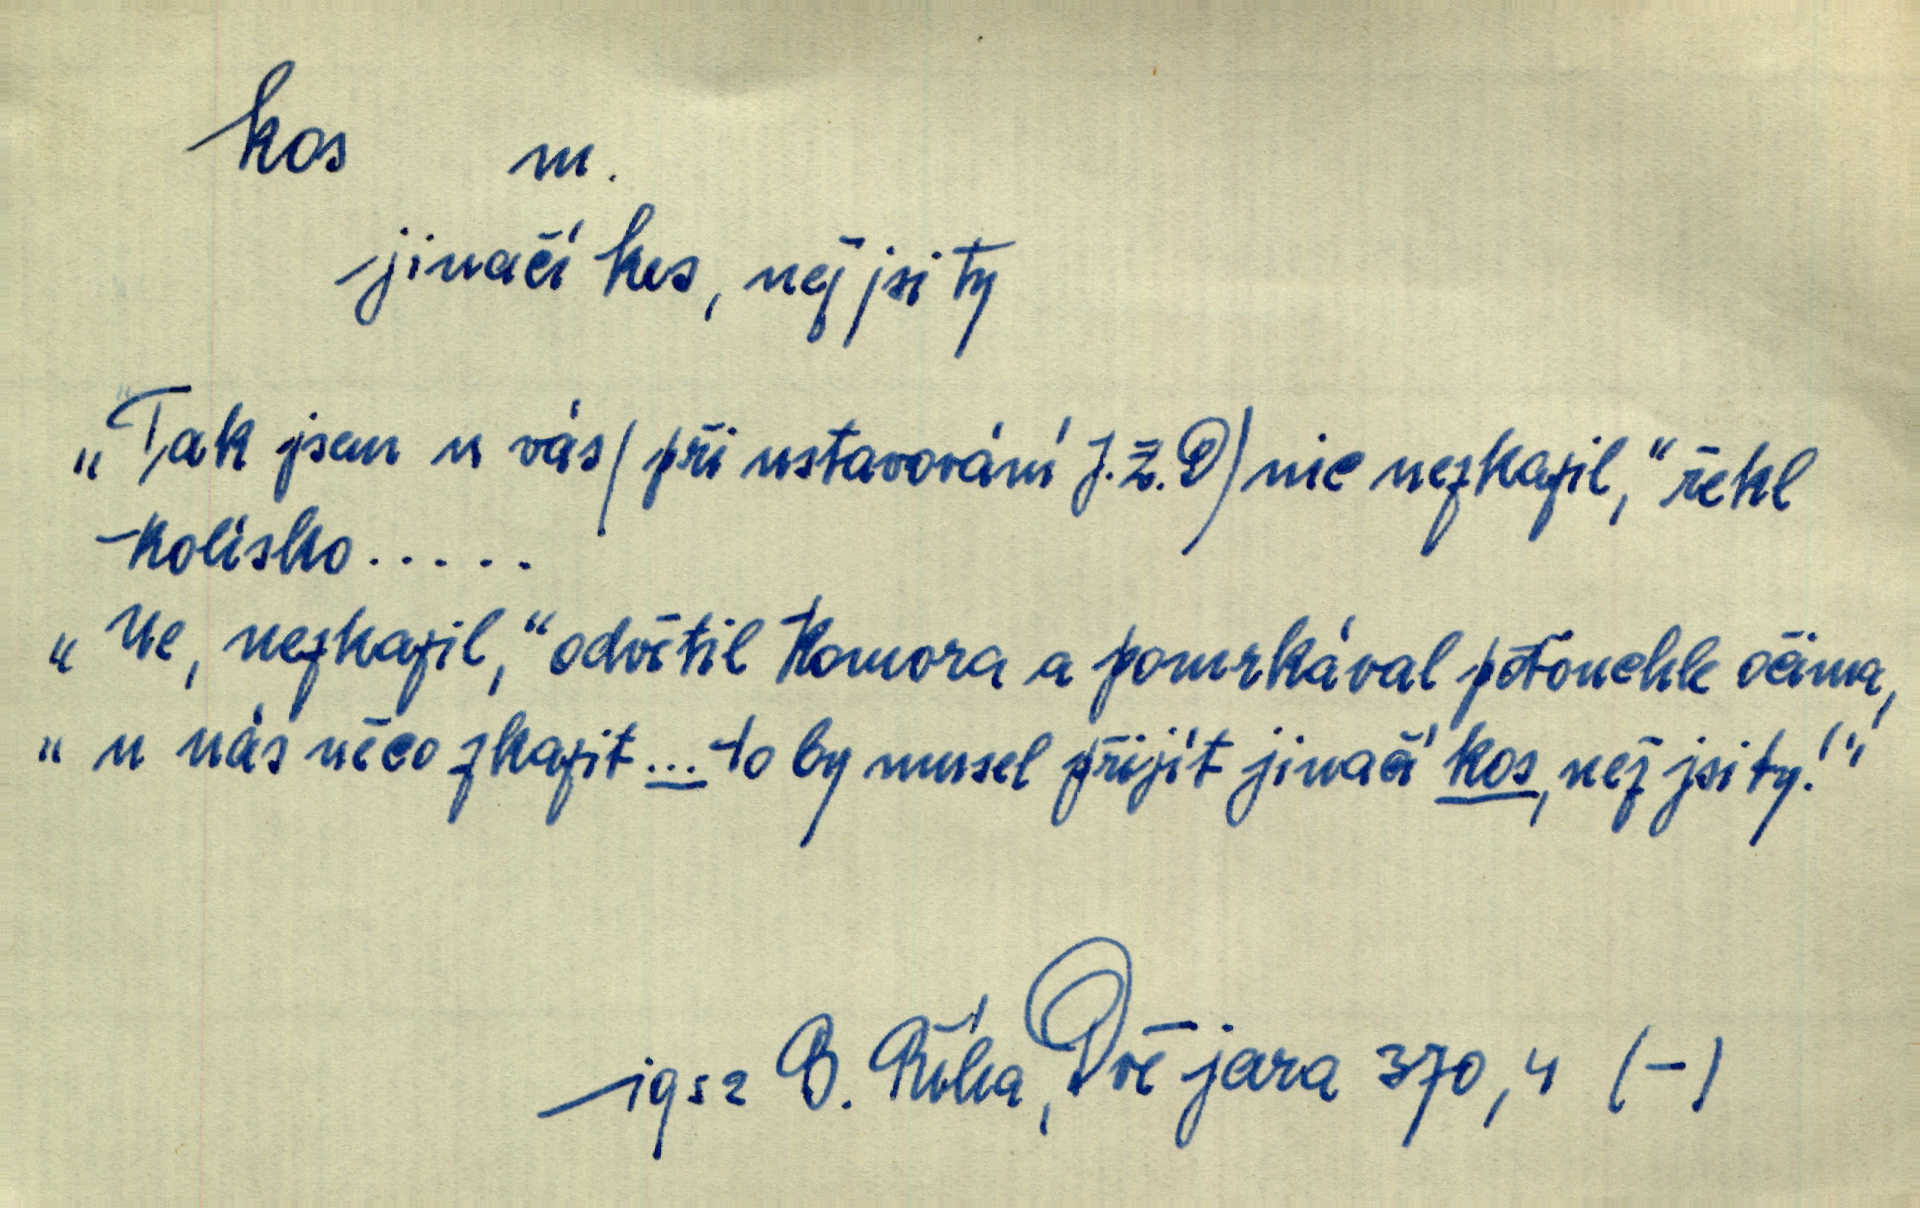 kos m.
jinačí kos, než jsi ty
„Tak jsem u vás (při ustavování J.Z.D) nic nezkazil,“ řekl
Kolísko.....
„Ne, nezkazil,“ odvětil Komora a pomrkával potouchle očima,
„u nás něco zkazit ... to by musel přijít jinačí kos, než jsi ty!“
1952 B. Říha, Dvě jara 370, 4 (-)